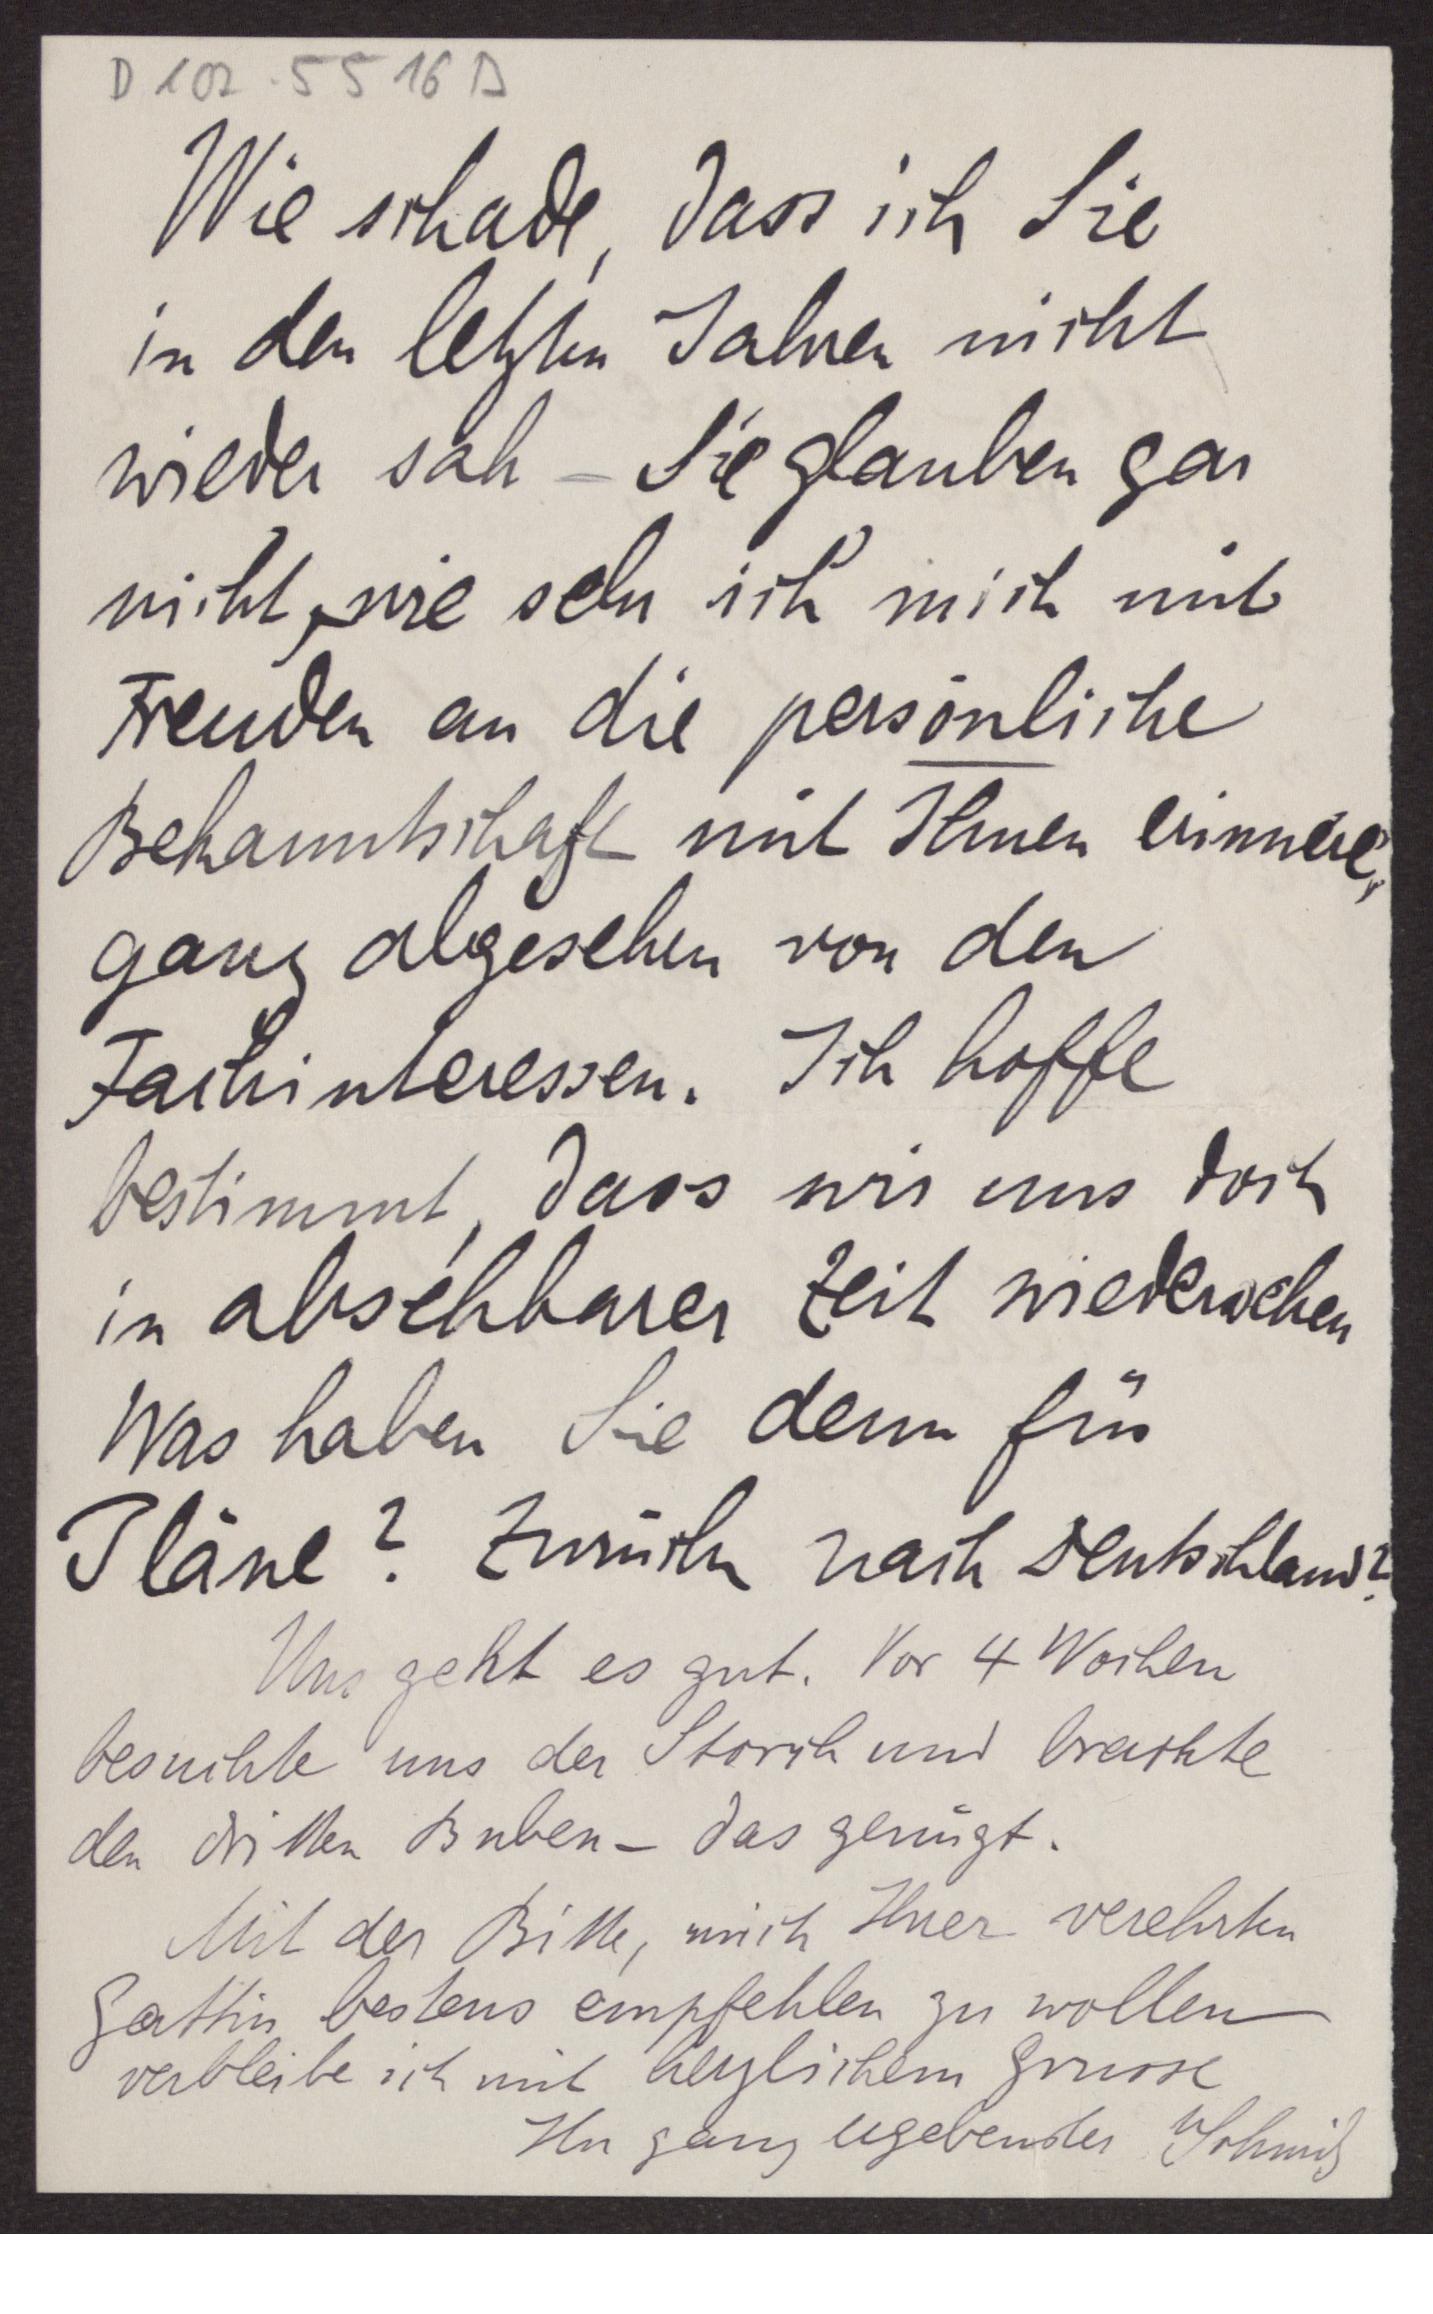 D 102.5516 D
Wie schade, dass ich Sie
in den letzten Jahren nicht
wieder sah – Sie glauben gar
nicht, wie sehr ich mich mit
Freuden an die persönliche
Bekanntschaft mit Ihnen erinnere,
ganz abgesehen von den
Fachinteressen. Ich hoffe
bestimmt, dass wir uns doch
in absehbarer Zeit wiedersehen
Was haben Sie denn für
Pläne? Zurück nach Deutschland?
Uns geht es gut. Vor 4 Wochen
besuchte uns der Storch und brachte
den dritten Buben – das genügt.
Mit der Bitte, mich Ihrer verehrten
Gattin bestens empfehlen zu wollen
verbleibe ich mit herzlichem Grusse
Ihr ganz ergebenster Schmitz